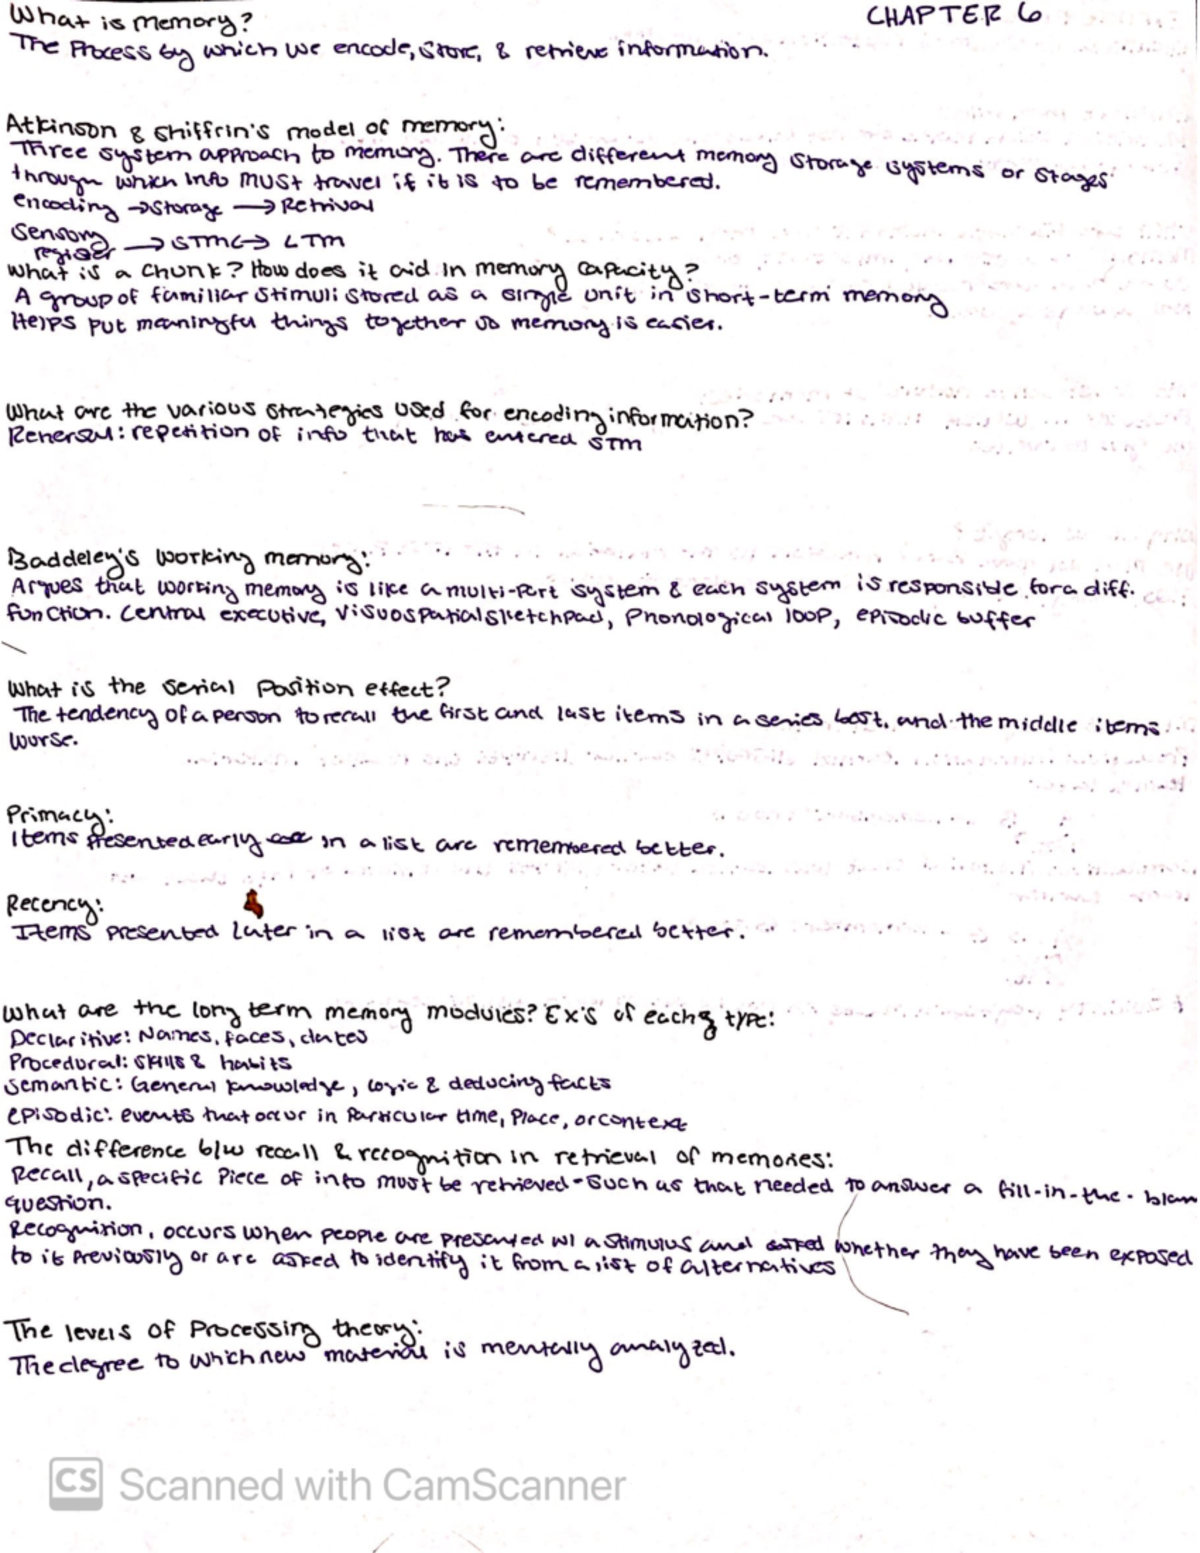 What is memory?
CHAPTER 6
The Process by which we encode, Store, & retrieve information.
Atkinson & Shiffrin's model of memory:
Three system approach to memory. There are different memory Storage Systems or Stages
through which info MUST travel if it is to be remembered.
encoding → Storage → Retrival
Sensory
register → STM ↔ LTM
What is a Chunk? How does it aid in memory capacity?
A group of familiar stimuli stored as a single unit in short-term memory
Helps put meaningful things together so memory is easier.
What are the various strategies used for encoding information?
Rehersal: repetition of info that has entered STM
Baddeley's working memory:
Argues that working memory is like a multi-part system & each system is responsible for a diff.
function. Central executive, Visuospatial sketchpad, Phonological loop, episodic buffer
What is the Serial Position effect?
The tendency of a person to recall the first and last items in a series best, and the middle items
worse.
Primacy:
Items Presented early in a list are remembered better.
Recency:
Items presented Later in a list are remembered better.
What are the long term memory modules? Ex's of each type:
Declaritive: Names, faces, dates
Procedural: Skills & habits
Semantic: General knowledge, logic & deducing facts
episodic: events that occur in Particular time, Place, or context
The difference b/w recall & recognition in retrieval of memories:
Recall, a specific Piece of info must be retrieved - Such as that needed to answer a fill-in-the-blan
question.
Recognition, occurs when people are presented w/ a Stimulus and asked whether they have been exposed
to it Previously or are asked to identify it from a list of alternatives
The levels of Processing theory:
The degree to which new material is mentally analyzed.
CS Scanned with CamScanner